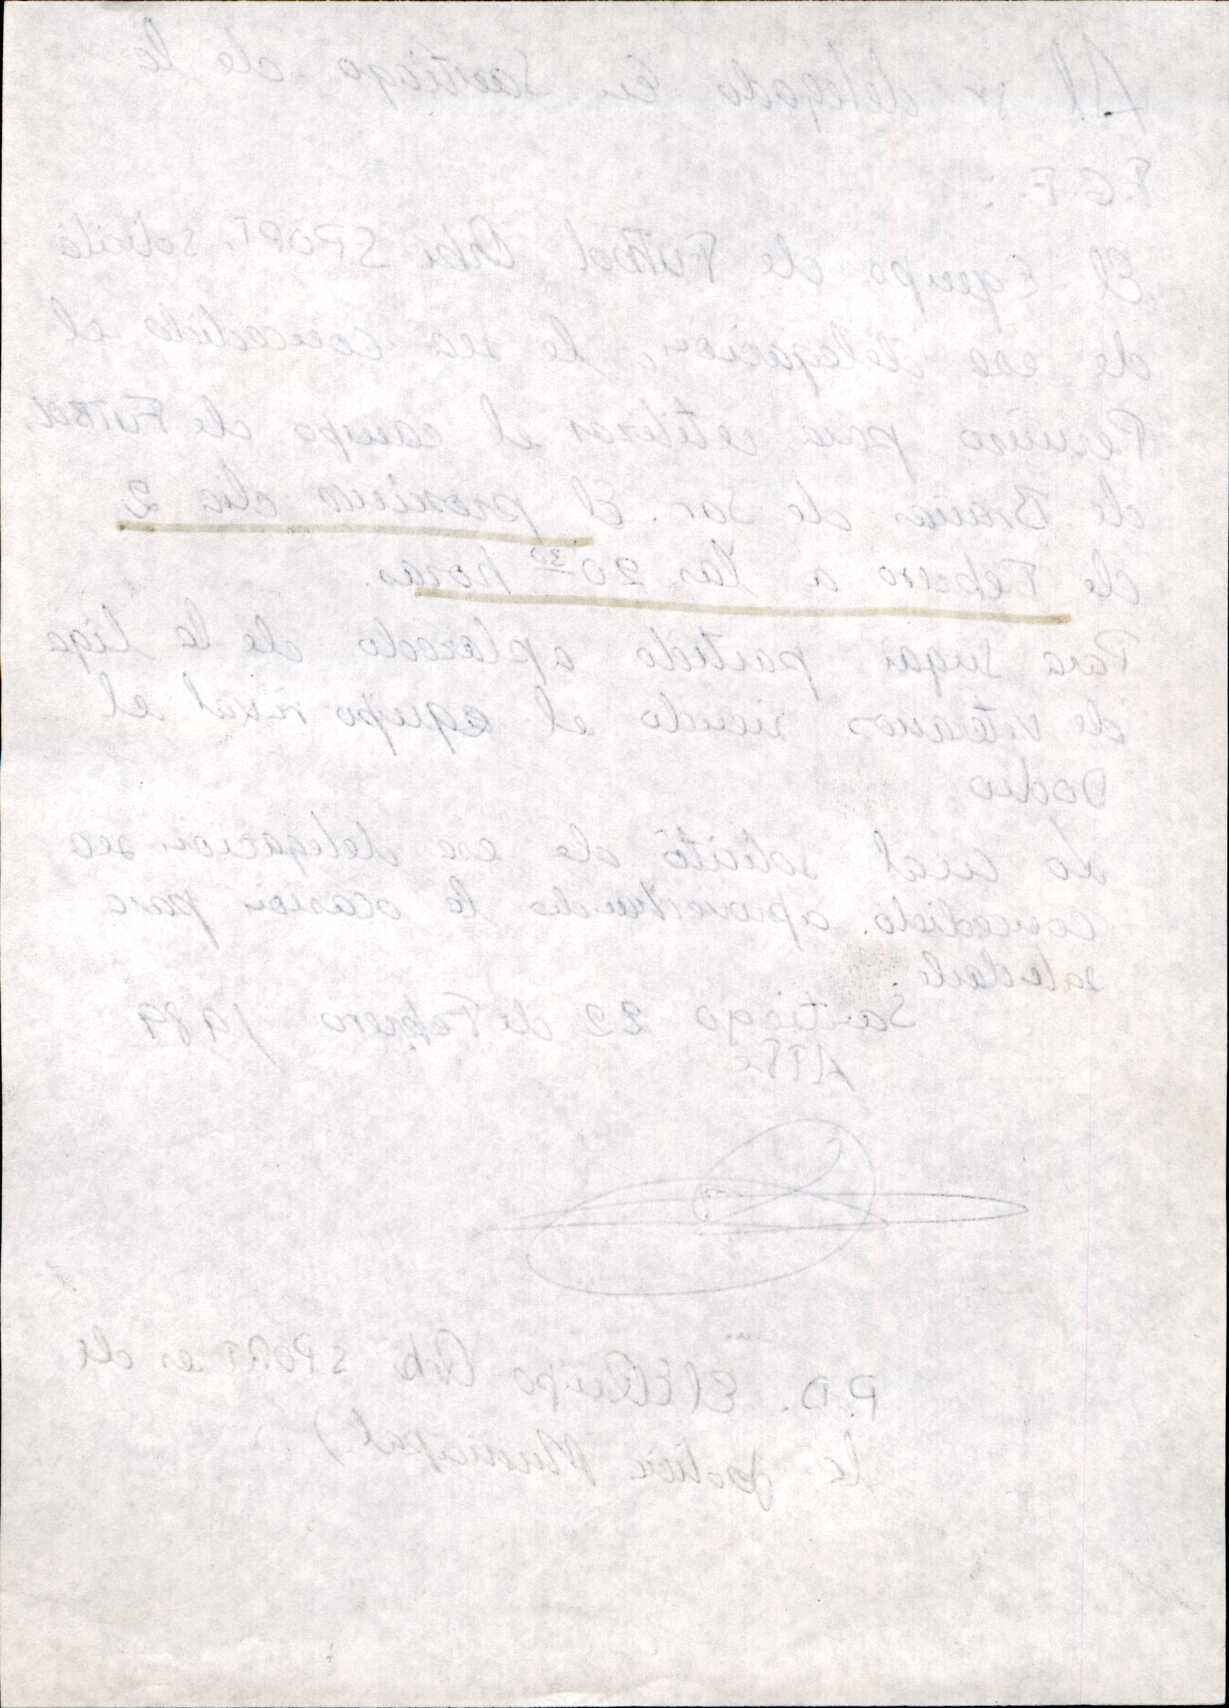 Al sr delegado en Santiago de la
F.G.F. :
El Equipo de Futbol SPORT, solicita
de esa delegacion, le sea concedido el
Permiso para utilizar el campo de FUTBOL
de Brañas de Sar. El proximo dia 2
de Febrero a las 20 30 horas.
Para jugar partido aplazado de la liga
de veteranos siendo el equipo rival el
Dodro
Lo cual solicito de esa delegacion sea
concedido. aprovechando la ocasion para
saludarle
Santiago 22 de Febrero 1989
P.D. El EQuipo SPORT es de
la policia Municipal)